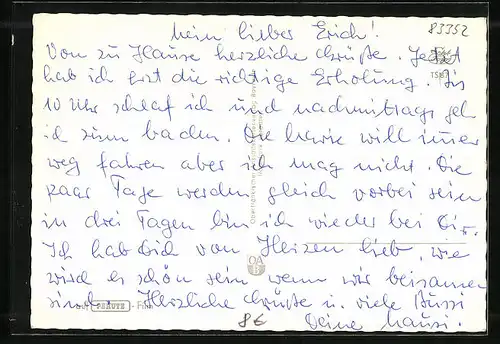 Mein lieber Erich! 83352
Von zu Hause herzliche Grüße. Jetzt
hab ich erst die richtige Erholung. Bis
10 Uhr schlaf ich und nachmittags geh
ich zum baden. Die will immer
weg fahren aber ich mag nicht. Die
paar Tage werden gleich vorbei sein
in drei Tagen bin ich wieder bei Dir.
Ich hab Dich von Herzen lieb, wie
wird es schön sein wenn wir beisamen
sind. Herzliche Grüße u. viele Bussi
Deine Mausi.
auf PERUTZ - Film
8€